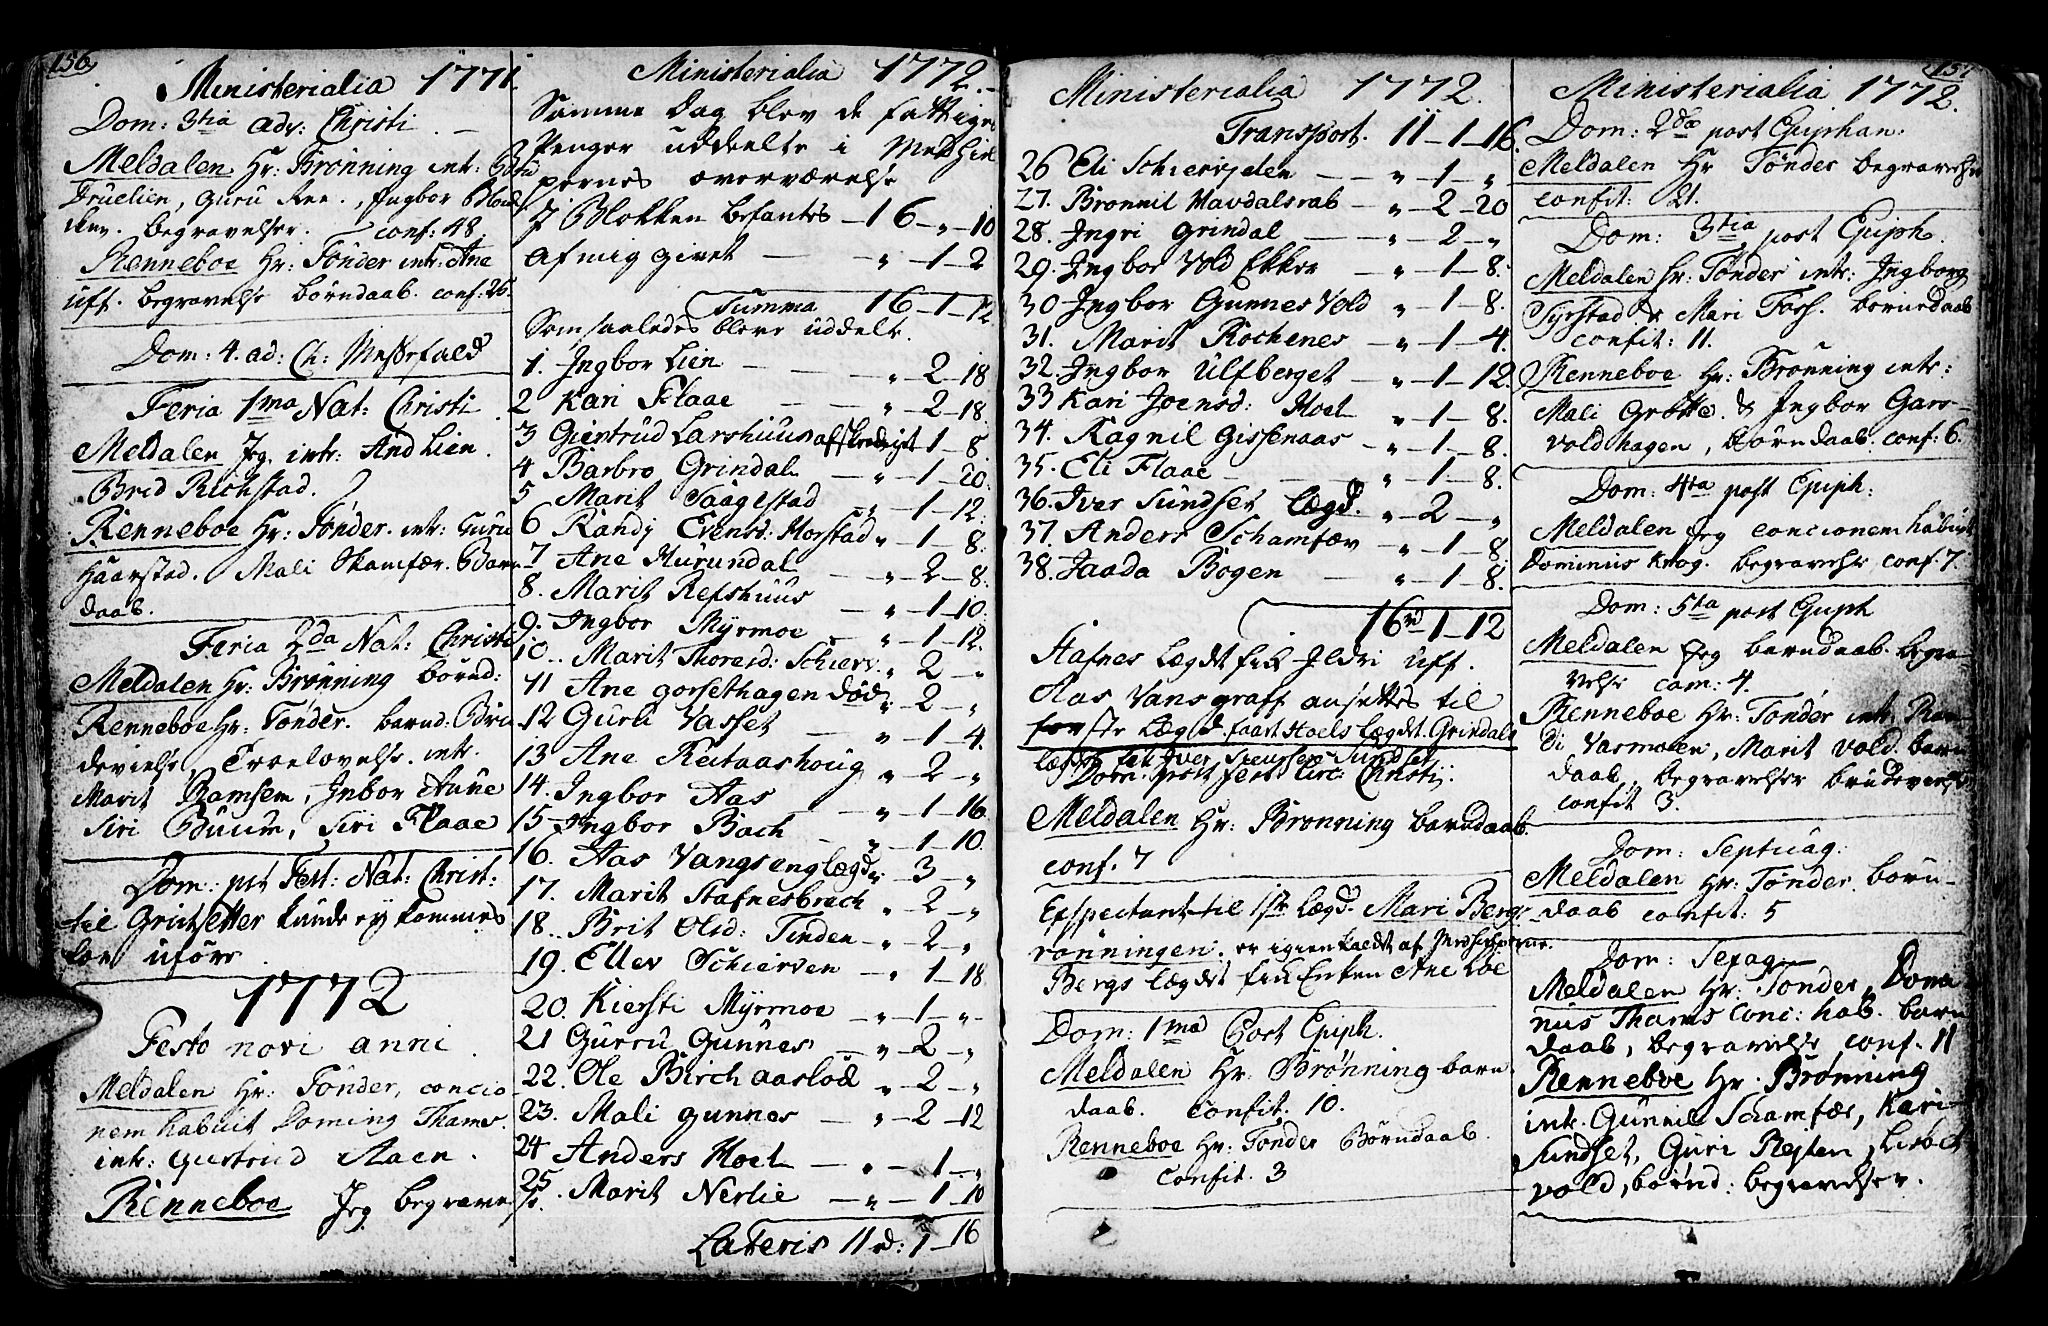 156
Ministerialia 1771.
Dom: 3tia adv: Christi
Meldalen Hr: Brønning intr:
Druelien, Guru Ree., Ingbor
begravelser. conf: 48.
Renneboe Hr: Tønder intr: Ane
Uff. begravelse børndaab. conf: 26.
Dom: 4. ad: Ch: Messefald
Feria 1ma Nat: Christi
Meldalen Jeg. intr: And Lien.
Brid Richstad.
Renneboe Hr: Tønder. intr: Guru
Haarstad. Mali Skamfær. Barn
daab.
Feria 2da Nat: Christi
Meldalen Hr: Brønning børnd:
Renneboe Hr: Tønder. barnd: Bru
devielse, Troelovelse. intr.
Marit Ramsem, Inbor Aune
Siri Buum, Siri Flaae
Dom: pst Fest: Nat: Christ:
til Grutsetter kunde ey kommes
for uføre
1772
Festo novi anni
Meldalen Hr: Tønder, concio
nem habuit Doming Thams.
intr: Giertrud Aaen.
Renneboe Jeg begravels
Ministerialia 1772.
Samme Dag blev de fattiges
Penger uddeelte i Medhiel
pernes overværelse
I Blokken befantes – 16 – „ – 10
af mig givet – „ – 1 – 2
Summa 16 – 1 – 12
Som saaledes bleve uddelt.
1. Ingbor Lien – „ – 2 – 18
2 Kari Flaae – „ – 2 – 18.
3 Giertrud Larshuus afskrediget 1 – 8
4 Barbro Grindal – „ – 1 – 20.
5 Marit Saagestad „ – 1 – 12.
6 Randj Evensd: Horstad „ – 1 – 8.
7 Ane Hurundal – „ – 2 – 8.
8. Marit Refshuus – „ – 1 – 10.
9. Ingbor Myrmoe – „ – 1 – 12.
10. Marit Thoresd: Schierv „ – 2 – „
11 Ane Gorsethagen død „ – 2 – „
12 Guru Vasset – „ – 1 – 4.
13 Ane Reitaashoug „ – 2 – „
14. Ingbor Aas – „ – 1 – 16
15 Ingbor Bach – „ – 1 – 10.
16. Aas Vangsenglægd „ – 3 – „
17. Marit Stafnesbrech „ – 2 – „
18. Brit Olsd: Tinden – „ – 2 – „
19. Ellev Schierven – „ – 1 – 18
20. Kiersti Myrmoe – „ – 1 – „
21 Gurru Gunnes – „ – 2 – „
22. Ole Birchaaslød „ – 2 – „
23. Mali Gunnes – „ – 2 – 12
24 Anders Hoel – „ – 1 – „
25. Marit Nerlie – „ – 1 – 10
Lateris 11 rd: 1 – 16
Ministerialia 1772.
Transport. 11 – 1 – 16.
26 Eli Schiervjelen – „ – 1 – „
27. Brønnil Havdalsrab – „ – 2 – 20
28. Ingri Grindal – „ – 2 – „
29. Ingbor Vold Ekker – „ – 1 – 8.
30 Ingbor Gunnes Vold „ – 1 – 8.
31. Marit Rochenes – „ – 1 – 4.
32. Ingbor Ulfberget – „ – 1 – 12.
33 Kari Joensd: Hoel „ – 1 – 8.
34. Ragnil Gissenaas – „ – 1 – 8.
35. Eli Flaae – „ – 1 – 8.
36. Iver Sundset Lægd. „ – 2 – „
37. Anders Schamfær – „ – 1 – 8
38. Jaada Bogen – „ – 1 8.
16 rd 1 – 12
Stafnes Lægdt fik Ildri Uff.
Aas Vansgraff ansettes til
første Lægd. faart Hoels Lægdt. Grindals
Iver Sundset
Dom: post fest Circ: Christi.
Meldalen Hr: Brønning barndaab.
conf. 7
Exspectant til 1ste Lægd. Mari Bergs
rønningen. er igien kaldt af Medhielperne.
Bergs Lægdt fik Enken Ane Loe
Dom: 1ma Post Epiph.
Meldalen Hr: Brønning barn
daab. confit. 10.
Renneboe Hr: Tønder Børndaab.
Confit. 3
157
Ministerialia 1772.
Dom: 2da post Epiphan:
Meldalen Hr Tønder begravelse
confit: 21.
Dom: 3tia post Epiph.
Meldalen Hr: Tønder intr: Ingborg
Syrstad & Mari Foss. børnedaab
confit: 11.
Renneboe Hr: Brønning intr:
Mali Grøtte. & Ingbor Gars-
voldhagen, Børndaab. conf: 6.
Dom: 4ta post Epiph:
Meldalen Jeg concionem habuit
Dominus Krog. begravelse conf: 7.
Dom: 5ta post Epiph
Meldalen Jeg barndaab. begra-
velse com: 4.
Renneboe Hr: Tønder intr: Ran
di Værmolen, Marit Vold. barn
daab, begravelser brudevielse
confit 3.
Dom: Septuag:
Meldalen Hr: Tønder. børn-
daab confit: 5
Dom: Sexag
Meldalen Hr: Tønder, Domi
nus Thams Conc: hab. barn
daab, begravelse conf. 11
Renneboe Hr. Brønning
intr. Gunnil Schamfær, Kari
Sundset, Guri Resten, Lisbet
Vold, børnd: begravelser.